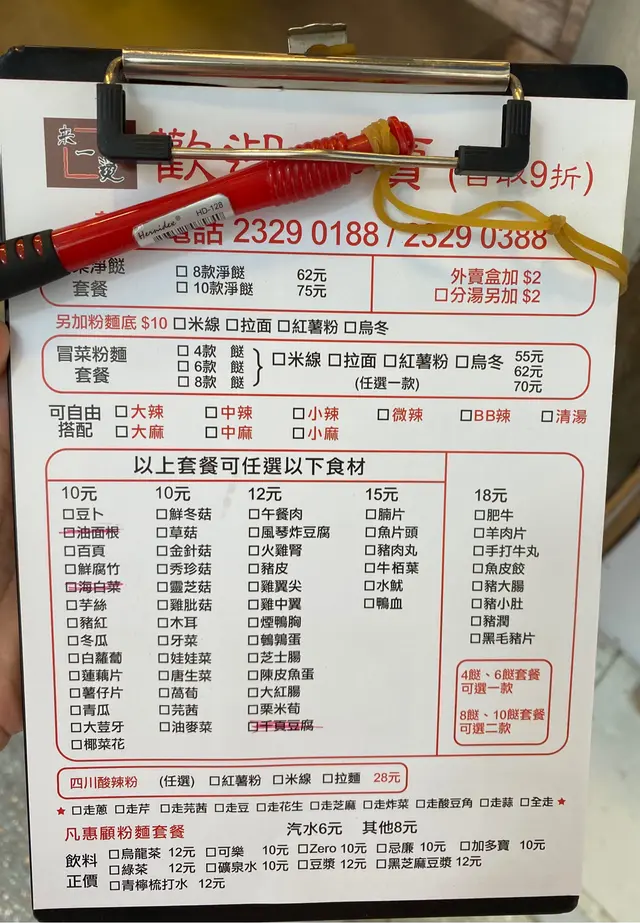 來一燙
歡迎 (自取9折)
Hernidex HD-128
電話 2329 0188 / 2329 0388
淨餸 套餐
□ 8款淨餸 62元
□ 10款淨餸 75元
外賣盒加 $2
□分湯另加 $2
另加粉麵底 $10 □米線 □拉面 □紅薯粉 □烏冬
冒菜粉麵 套餐
□ 4款 餸
□ 6款 餸
□ 8款 餸
□米線 □拉面 □紅薯粉 □烏冬
(任選一款)
55元
62元
70元
可自由 搭配
□大辣 □中辣 □小辣 □微辣 □BB辣 □清湯
□大麻 □中麻 □小麻
以上套餐可任選以下食材
10元
□豆卜
□油面根
□百頁
□鮮腐竹
□海白菜
□芋絲
□豬紅
□冬瓜
□白蘿蔔
□蓮藕片
□薯仔片
□青瓜
□大荳牙
□椰菜花
10元
□鮮冬菇
□草菇
□金針菇
□秀珍菇
□靈芝菇
□雞肶菇
□木耳
□牙菜
□娃娃菜
□唐生菜
□萵荀
□芫茜
□油麥菜
12元
□午餐肉
□風琴炸豆腐
□火雞腎
□豬皮
□雞翼尖
□雞中翼
□煙鴨胸
□鵪鶉蛋
□芝士腸
□陳皮魚蛋
□大紅腸
□栗米荀
□千頁豆腐
15元
□腩片
□魚片頭
□豬肉丸
□牛栢葉
□水魷
□鴨血
18元
□肥牛
□羊肉片
□手打牛丸
□魚皮餃
□豬大腸
□豬小肚
□豬潤
□黑毛豬片
4餸、6餸套餐
可選一款
8餸、10餸套餐
可選二款
四川酸辣粉 (任選) □紅薯粉 □米線 □拉麵 28元
★ □走蔥 □走芹 □走芫茜 □走豆 □走花生 □走芝麻 □走炸菜 □走酸豆角 □走蒜 □全走 ★
凡惠顧粉麵套餐 汽水6元 其他8元
飲料 正價
□烏龍茶 12元 □可樂 10元 □Zero 10元 □忌廉 10元 □加多寶 10元
□綠茶 12元 □礦泉水 10元 □豆漿 12元 □黑芝麻豆漿 12元
□青檸梳打水 12元